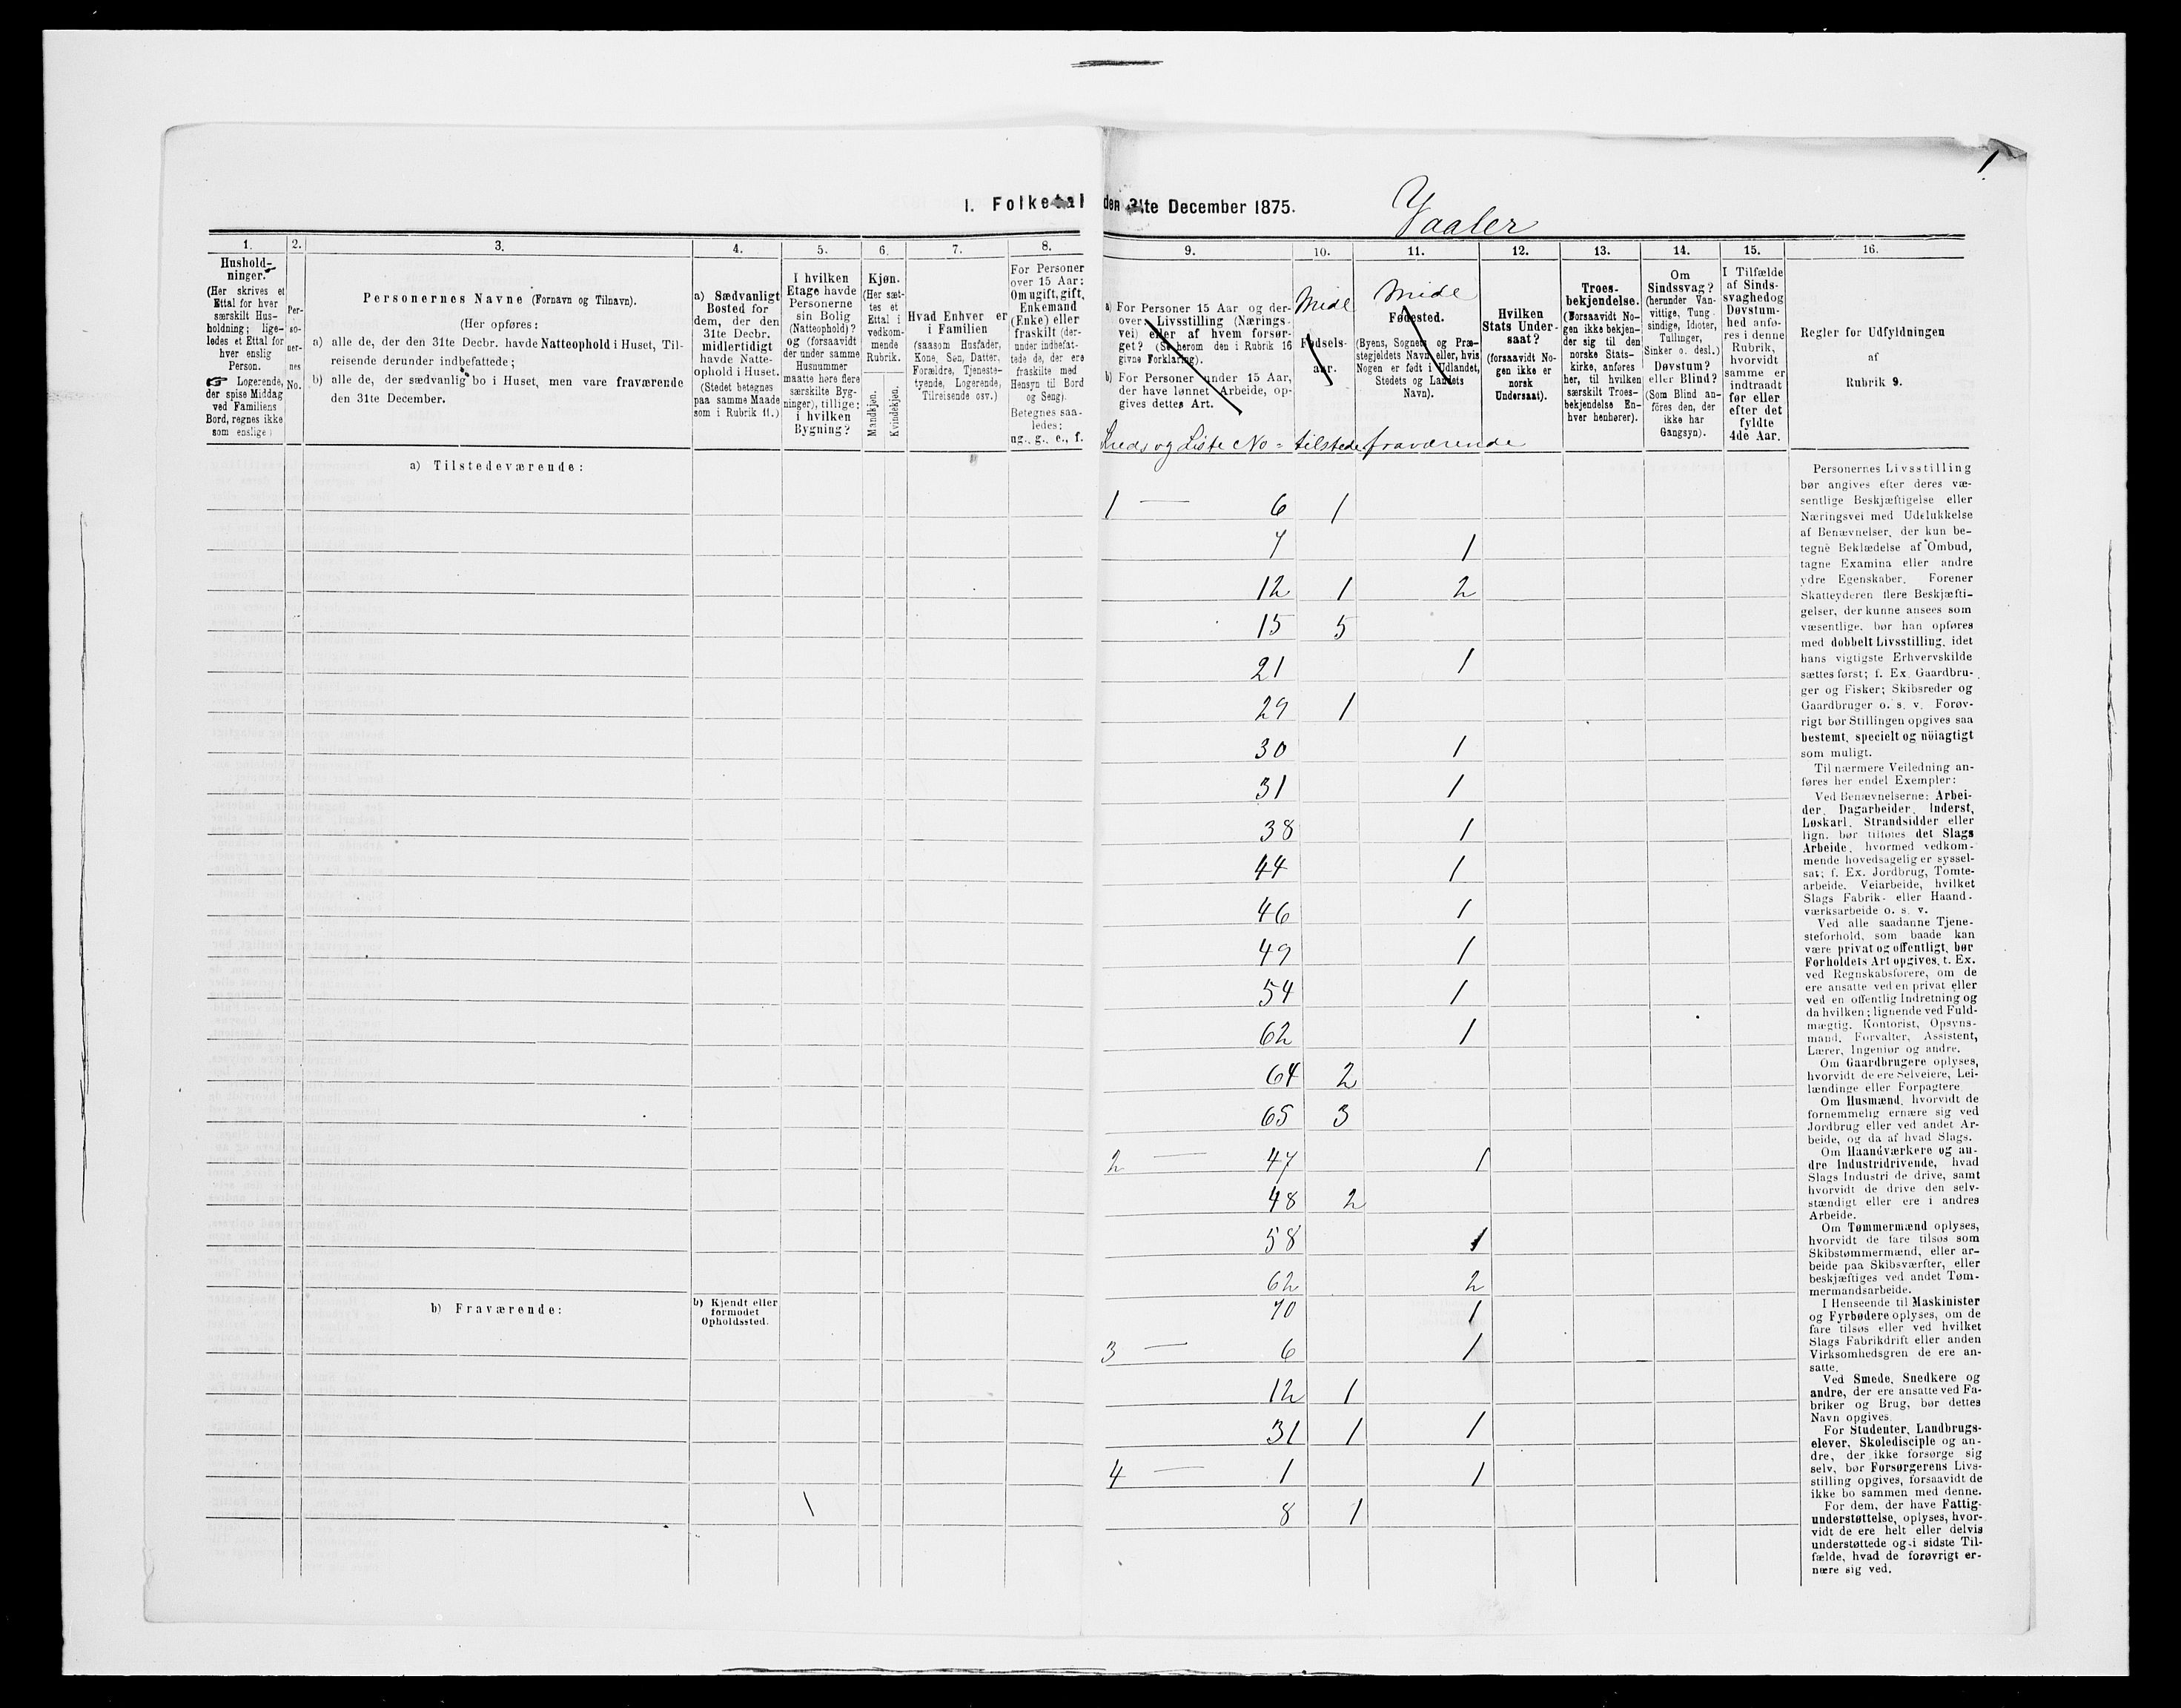 1
I. Folketal den 31te December 1875.
Vaaler
1.
Hushold-
ninger.
(Her skrives et
Ettal for hver
særskilt Hus-
holdning; lige-
ledes et Ettal for
hver enslig
Person.
☞ Logerende,
der spise Middag
ved Familiens
Bord, regnes ikke
som enslige)
2.
Per-
so-
ner-
nes
No.
3.
Personernes Navne (Fornavn og Tilnavn).
(Her opføres:
a) alle de, der den 31te Decbr. havde Natteophold i Huset, Til-
reisende derunder indbefattede;
b) alle de, der sædvanlig bo i Huset, men vare fraværende
den 31te December.
4.
a) Sædvanligt
Bosted for
dem, der den
31te Decbr.
midlertidigt
havde Natte-
ophold i Huset.
(Stedet betegnes
paa samme Maade
som i Rubrik 11.)
5.
I hvilken
Etage havde
Personerne
sin Bolig
(Natteophold)?
og (forsaavidt
der under samme
Husnummer
maatte høre flere
særskilte Byg-
ninger), tillige:
i hvilken
Bygning?
6.
Kjøn.
(Her sæt-
tes et
Ettal i
vedkom-
mende
Rubrik.
Mandkjøn.
Kvindekjøn.
7.
Hvad Enhver er
i Familien
(saasom Husfader,
Kone, Søn, Datter,
Forældre, Tjeneste-
tyende, Logerende,
Tilreisende osv.)
8.
For Personer
over 15 Aar:
Om ugift, gift,
Enkemand
(Enke) eller
fraskilt (der-
under indbefat-
tede de, der ere
fraskilte med
Hensyn til Bord
og Seng).
Betegnes saa-
ledes:
ug., g., e., f.
9.
a) For Personer 15 Aar og der-
over: Livsstilling (Nærings-
vei) eller af hvem forsør-
get? (Se herom den i Rubrik 16
givne Forklaring).
b) For Personer under 15 Aar,
der have lønnet Arbeide, op-
gives dettes Art.
10.
Midl
Fødsels-
aar.
11.
Midl
Fødested.
(Byens, Sognets og Præ-
stegjeldets Navn eller, hvis
Nogen er født i Udlandet,
Stedets og Landets
Navn).
12.
Hvilken
Stats Under-
saat?
(forsaavidt No-
gen ikke er
norsk
Undersaat).
13.
Troes-
bekjendelse.
(Forsaavidt No-
gen ikke bekjen-
der sig til den
norske Stats-
kirke, anføres
her, til hvilken
særskilt Troes-
bekjendelse En-
hver henhører).
14.
Om
Sindssvag?
(herunder Van-
vittige, Tung-
sindige, Idioter,
Tullinger,
Sinker o. desl.)
Døvstum?
eller Blind?
(Som Blind an-
føres den, der
ikke har
Gangsyn).
15.
I Tilfælde
af Sinds-
svaghedog
Døvstum-
hed anfø-
res i denne
Rubrik,
hvorvidt
samme er
indtraadt
før eller
efter det
fyldte
4de Aar.
16.
Regler for Udfyldningen
af
Rubrik 9.
Kreds og Liste No = tilstede fraværende
a) Tilstedeværende:
1 — 6 1
7 1
12 1 2
15 5
21 1
29 1
30 1
31 1
38 1
44 1
46 1
49 1
54 1
62 1
64 2
65 3
2 — 47 1
48 2
58 1
62 2
b) Fraværende:
b) Kjendt eller
formodet
Opholdssted.
70 1
3 — 6 1
12 1
31 1 1
4 — 1 1
8 1
Personernes Livsstilling
bør angives efter deres væ-
sentlige Beskjæftigelse eller
Næringsvei med Udelukkelse
af Benævnelser, der kun be-
tegne Beklædelse af Ombud,
tagne Examina eller andre
ydre Egenskaber. Forener
Skatteyderen flere Beskjæfti-
gelser, der kunne ansees som
væsentlige, bør han opføres
med dobbelt Livsstilling, idet
hans vigtigste Erhvervskilde
sættes først; f. Ex. Gaardbru-
ger og Fisker; Skibsreder og
Gaardbruger o. s. v. Forøv-
rigt bør Stillingen opgives saa
bestemt, specielt og nöiagtigt
som muligt.
Til nærmere Veiledning an-
føres her endel Exempler:
Ved Benævnelserne: Arbei-
der, Dagarbeider, Inderst,
Løskarl, Strandsidder eller
lign. bør tilføies det Slags
Arbeide, hvormed vedkom-
mende hovedsagelig er syssel-
sat; f. Ex. Jordbrug, Tomte-
arbeide, Veiarbeide, hvilket
Slags Fabrik- eller Haand-
værksarbeide o. s. v.
Ved alle saadanne Tjene-
steforhold, som baade kan
være privat og offentligt, bør
Forholdets Art opgives, t. Ex.
ved Regnskabsførere, om de
ere ansatte ved en privat eller
ved en offentlig Indretning og
da hvilken; lignende ved Fuld-
mægtig, Kontorist, Opsyns-
mand, Forvalter, Assistent,
Lærer, Ingeniør og andre.
Om Gaardbrugere oplyses,
hvorvidt de ere Selveiere, Lei-
lændinge eller Forpagtere
Om Husmænd, hvorvidt de
fornemmelig ernære sig ved
Jordbrug eller ved andet Ar-
beide, og da af hvad Slags.
Om Haandværkere og an-
dre Industridrivende, hvad
Slags Industri de drive, samt
hvorvidt de drive den selv-
stændigt eller ere i andres
Arbeide.
Om Tømmermænd oplyses,
hvorvidt de fare tilsøs som
Skibstømmermænd, eller ar-
beide paa Skibsværfter, eller
beskjæftiges ved andet Tøm-
mermandsarbeide.
I Henseende til Maskinister
og Fyrbødere oplyses, om de
fare tilsøs eller ved hvilket
Slags Fabrikdrift eller anden
Virksomhedsgren de ere an-
satte.
Ved Smede, Snedkere og
andre, der ere ansatte ved Fa-
briker og Brug, bør dettes
Navn opgives.
For Studenter, Landbrugs-
elever, Skoledisciple og an-
dre, der ikke forsørge sig
selv, bør Forsørgerens Livs-
stilling opgives, forsaavidt de
ikke bo sammen med denne.
For dem, der have Fattig-
understøttelse, oplyses, hvor-
vidt de ere helt eller delvis
understøttede og i sidste Til-
fælde, hvad de forøvrigt er-
nære sig ved.